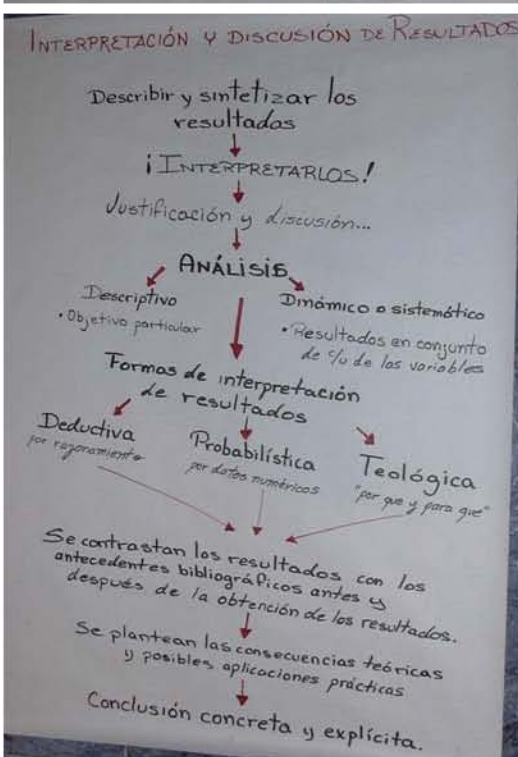 INTERPRETACIÓN Y DISCUSIÓN DE RESULTADOS
Describir y sintetizar los
resultados
¡INTERPRETARLOS!
Justificación y discusión...
ANÁLISIS
Descriptivo
• Objetivo particular
Dinámico o sistemático
• Resultados en conjunto
de c/u de las variables
Formas de interpretación
de resultados
Deductiva
por razonamiento
Probabilística
por datos numéricos
Teológica
"por que y para que"
Se contrastan los resultados con los
antecedentes bibliográficos antes y
después de la obtención de los resultados.
Se plantean las consecuencias teóricas
y posibles aplicaciones prácticas
Conclusión concreta y explícita.